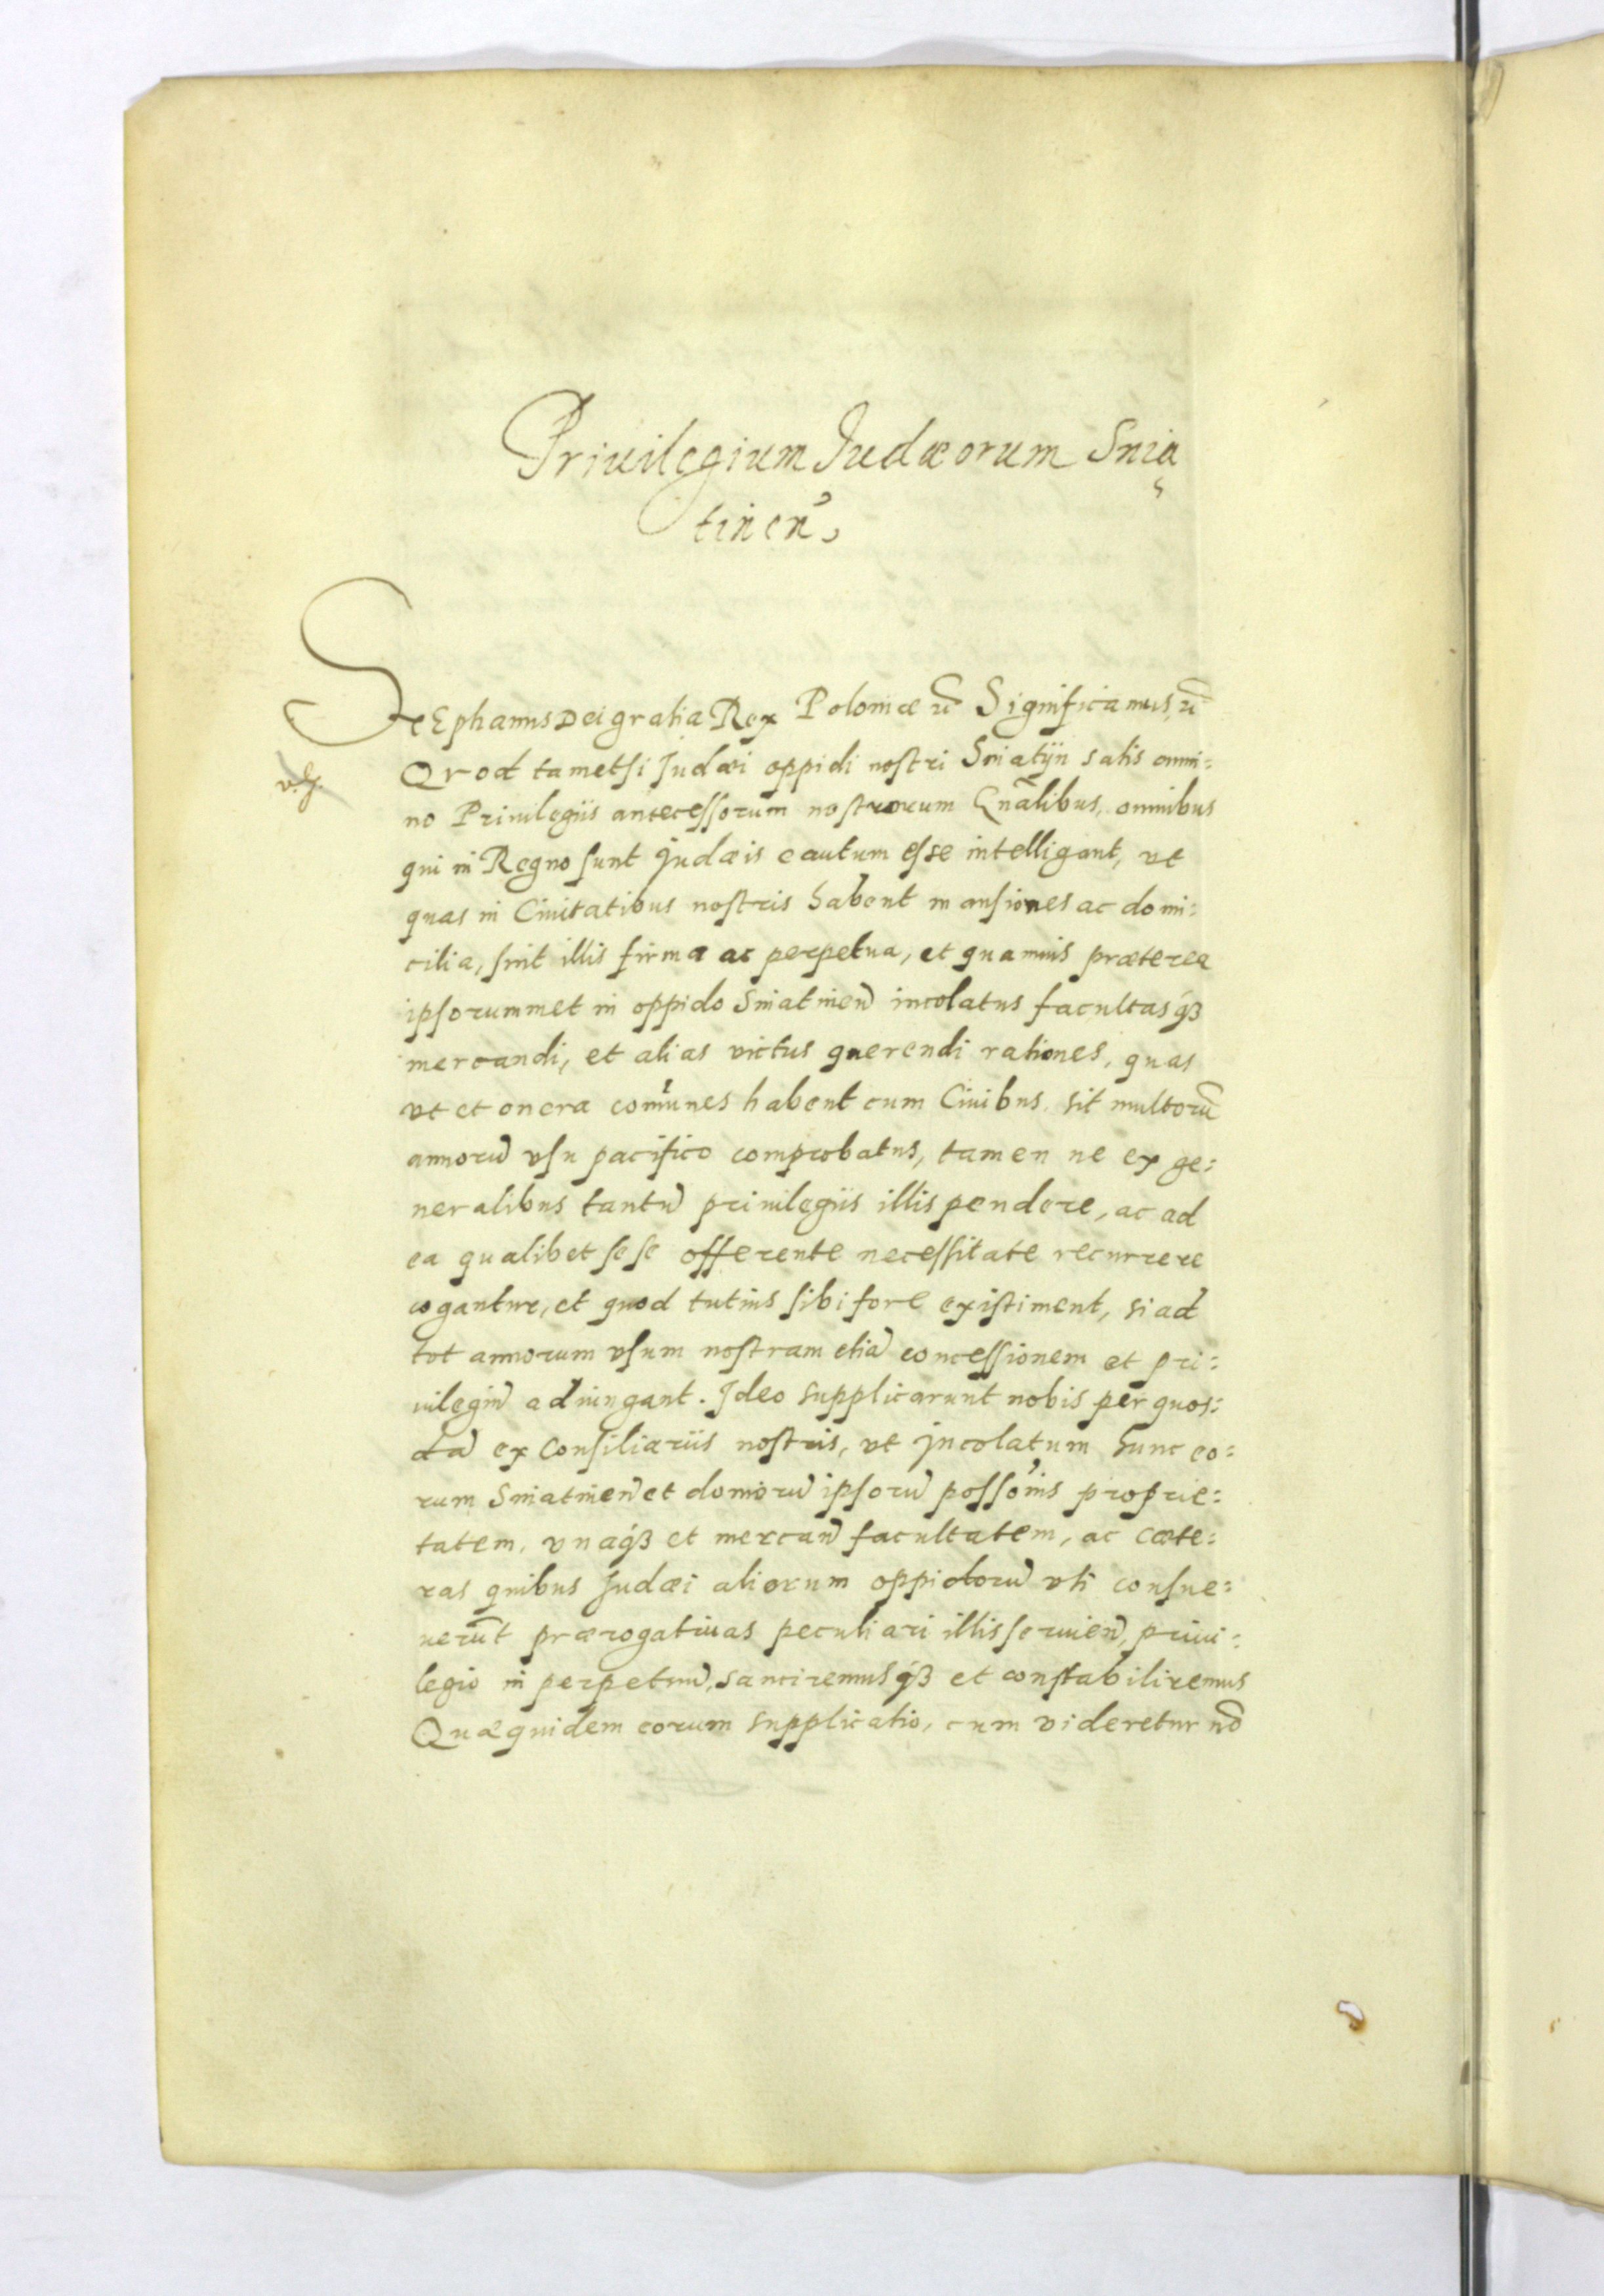 Priuilegium Judæorum Snia
tinen̄,
StEphanus Dei gratia Rex Poloniæ Significamus,
Qvod tametsi Judæi oppidi nostri Sniatÿn satis omni:
no Priuilegiis antecessorum nostrorum Gn̄alibus, omnibus
qui in Regno sunt Judæis cautum esse intelligant, vt
quas in Ciuitatibus nostris habent mansiones ac domi:
cilia, sint illis firma ac perpetua, et quamuis præterea
ipsorummet in oppido Sniatinen̄ incolatus facultasq́ꝫ
mercandi, et alias victus querendi rationes, quas
vt et onera com̄unes habent cum Ciuibus, sit multorū
annorū vsu pacifico comprobatus, tamen ne ex ge:
neralibus tantū priuilegiis illis pendere, ac ad
ea qualibet sese offerente necessitate recurrere
cogantur, et quod tutius sibi fore existiment, si ad
tot annorum vsum nostram etiā concessionem et pri:
uilegiū adiungant. Ideo supplicarunt nobis per quos:
dā ex Consiliariis nostris, vt Jncolatum hunc eo:
rum Sniatinen̄ et domorū ipsorū posso̅nis proprie:
tatem, vnaq́ꝫ et mercan̄ facultatem, ac cæte:
ras quibus Judæi aliorum oppidorū vti consue:
uerūt prærogatiuas peculiari illis seruien̄, priui:
legio in perpetuū, sanciremusq́ꝫ et constabiliremus
Quæquidem eorum supplicatio, cum videretur nō